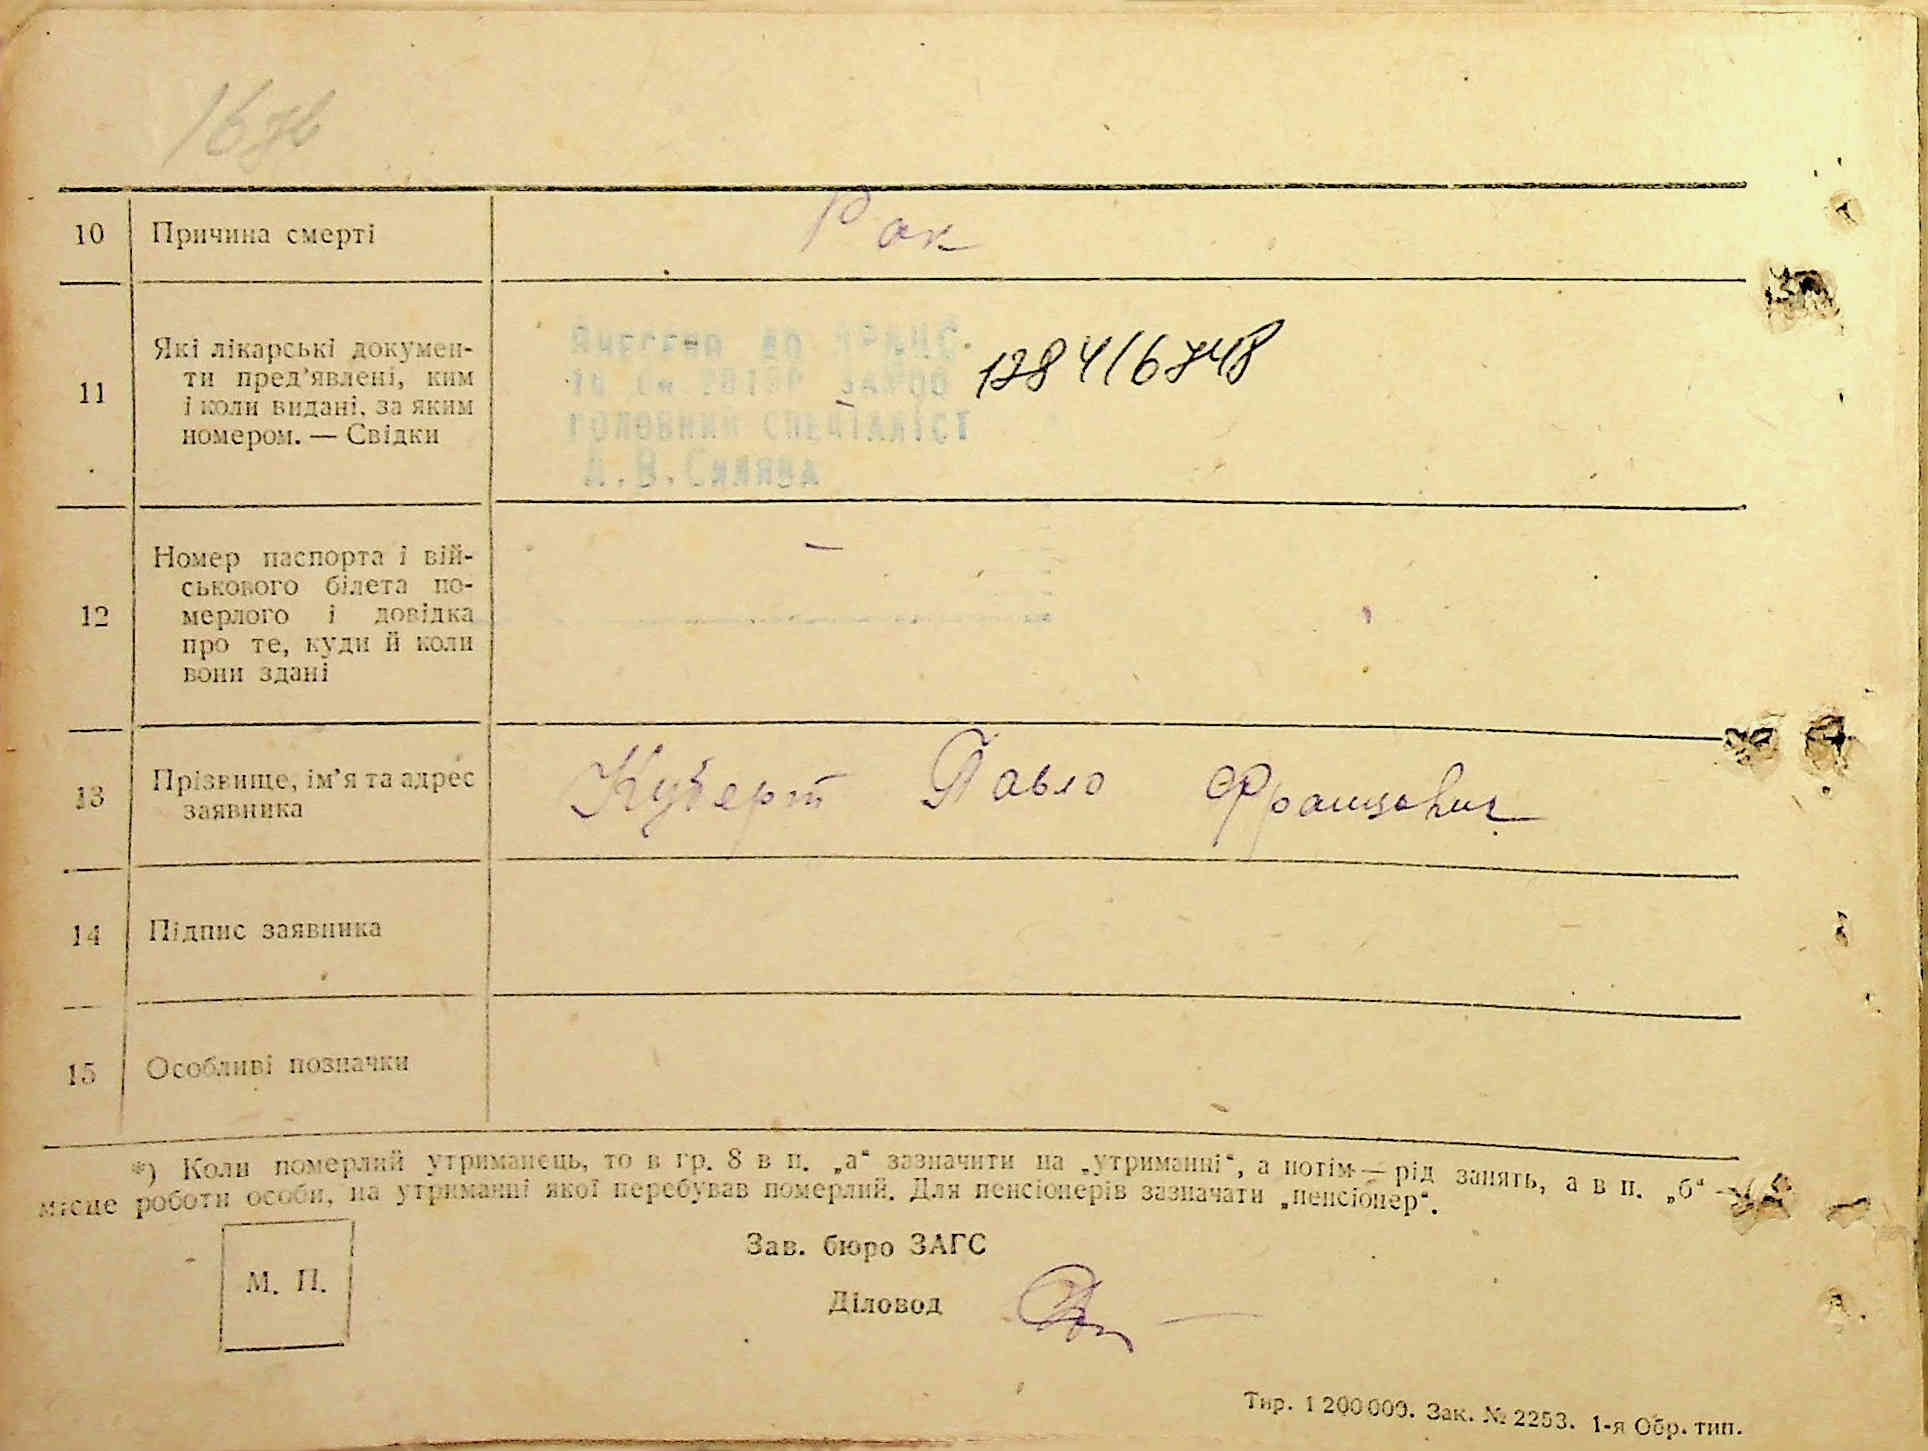 10 Причина смерті Рак
11 Які лікарські докумен-
ти пред’явлені, ким
і коли видані, за яким
номером. — Свідки
Внесено до
128416748
ГОЛОВНИЙ СПЕЦІАЛІСТ
12 Номер паспорта і вій-
ськового білета по-
мерлого і довідка
про те, куди й коли
вони здані
—
13 Прізвище, ім’я та адрес
заявника
Куберт Павло Францович
14 Підпис заявника
15 Особливі позначки
*) Коли померлий утриманець, то в гр. 8 в п. „а“ зазначити на „утриманні“, а потім — рід занять, а в п. „б“ —
місце роботи особи, на утриманні якої перебував померлий. Для пенсіонерів зазначати „пенсіонер“.
М. П.
Зав. бюро ЗАГС
Діловод
Тир. 1 200 000. Зак. № 2253. 1-я Обр. тип.